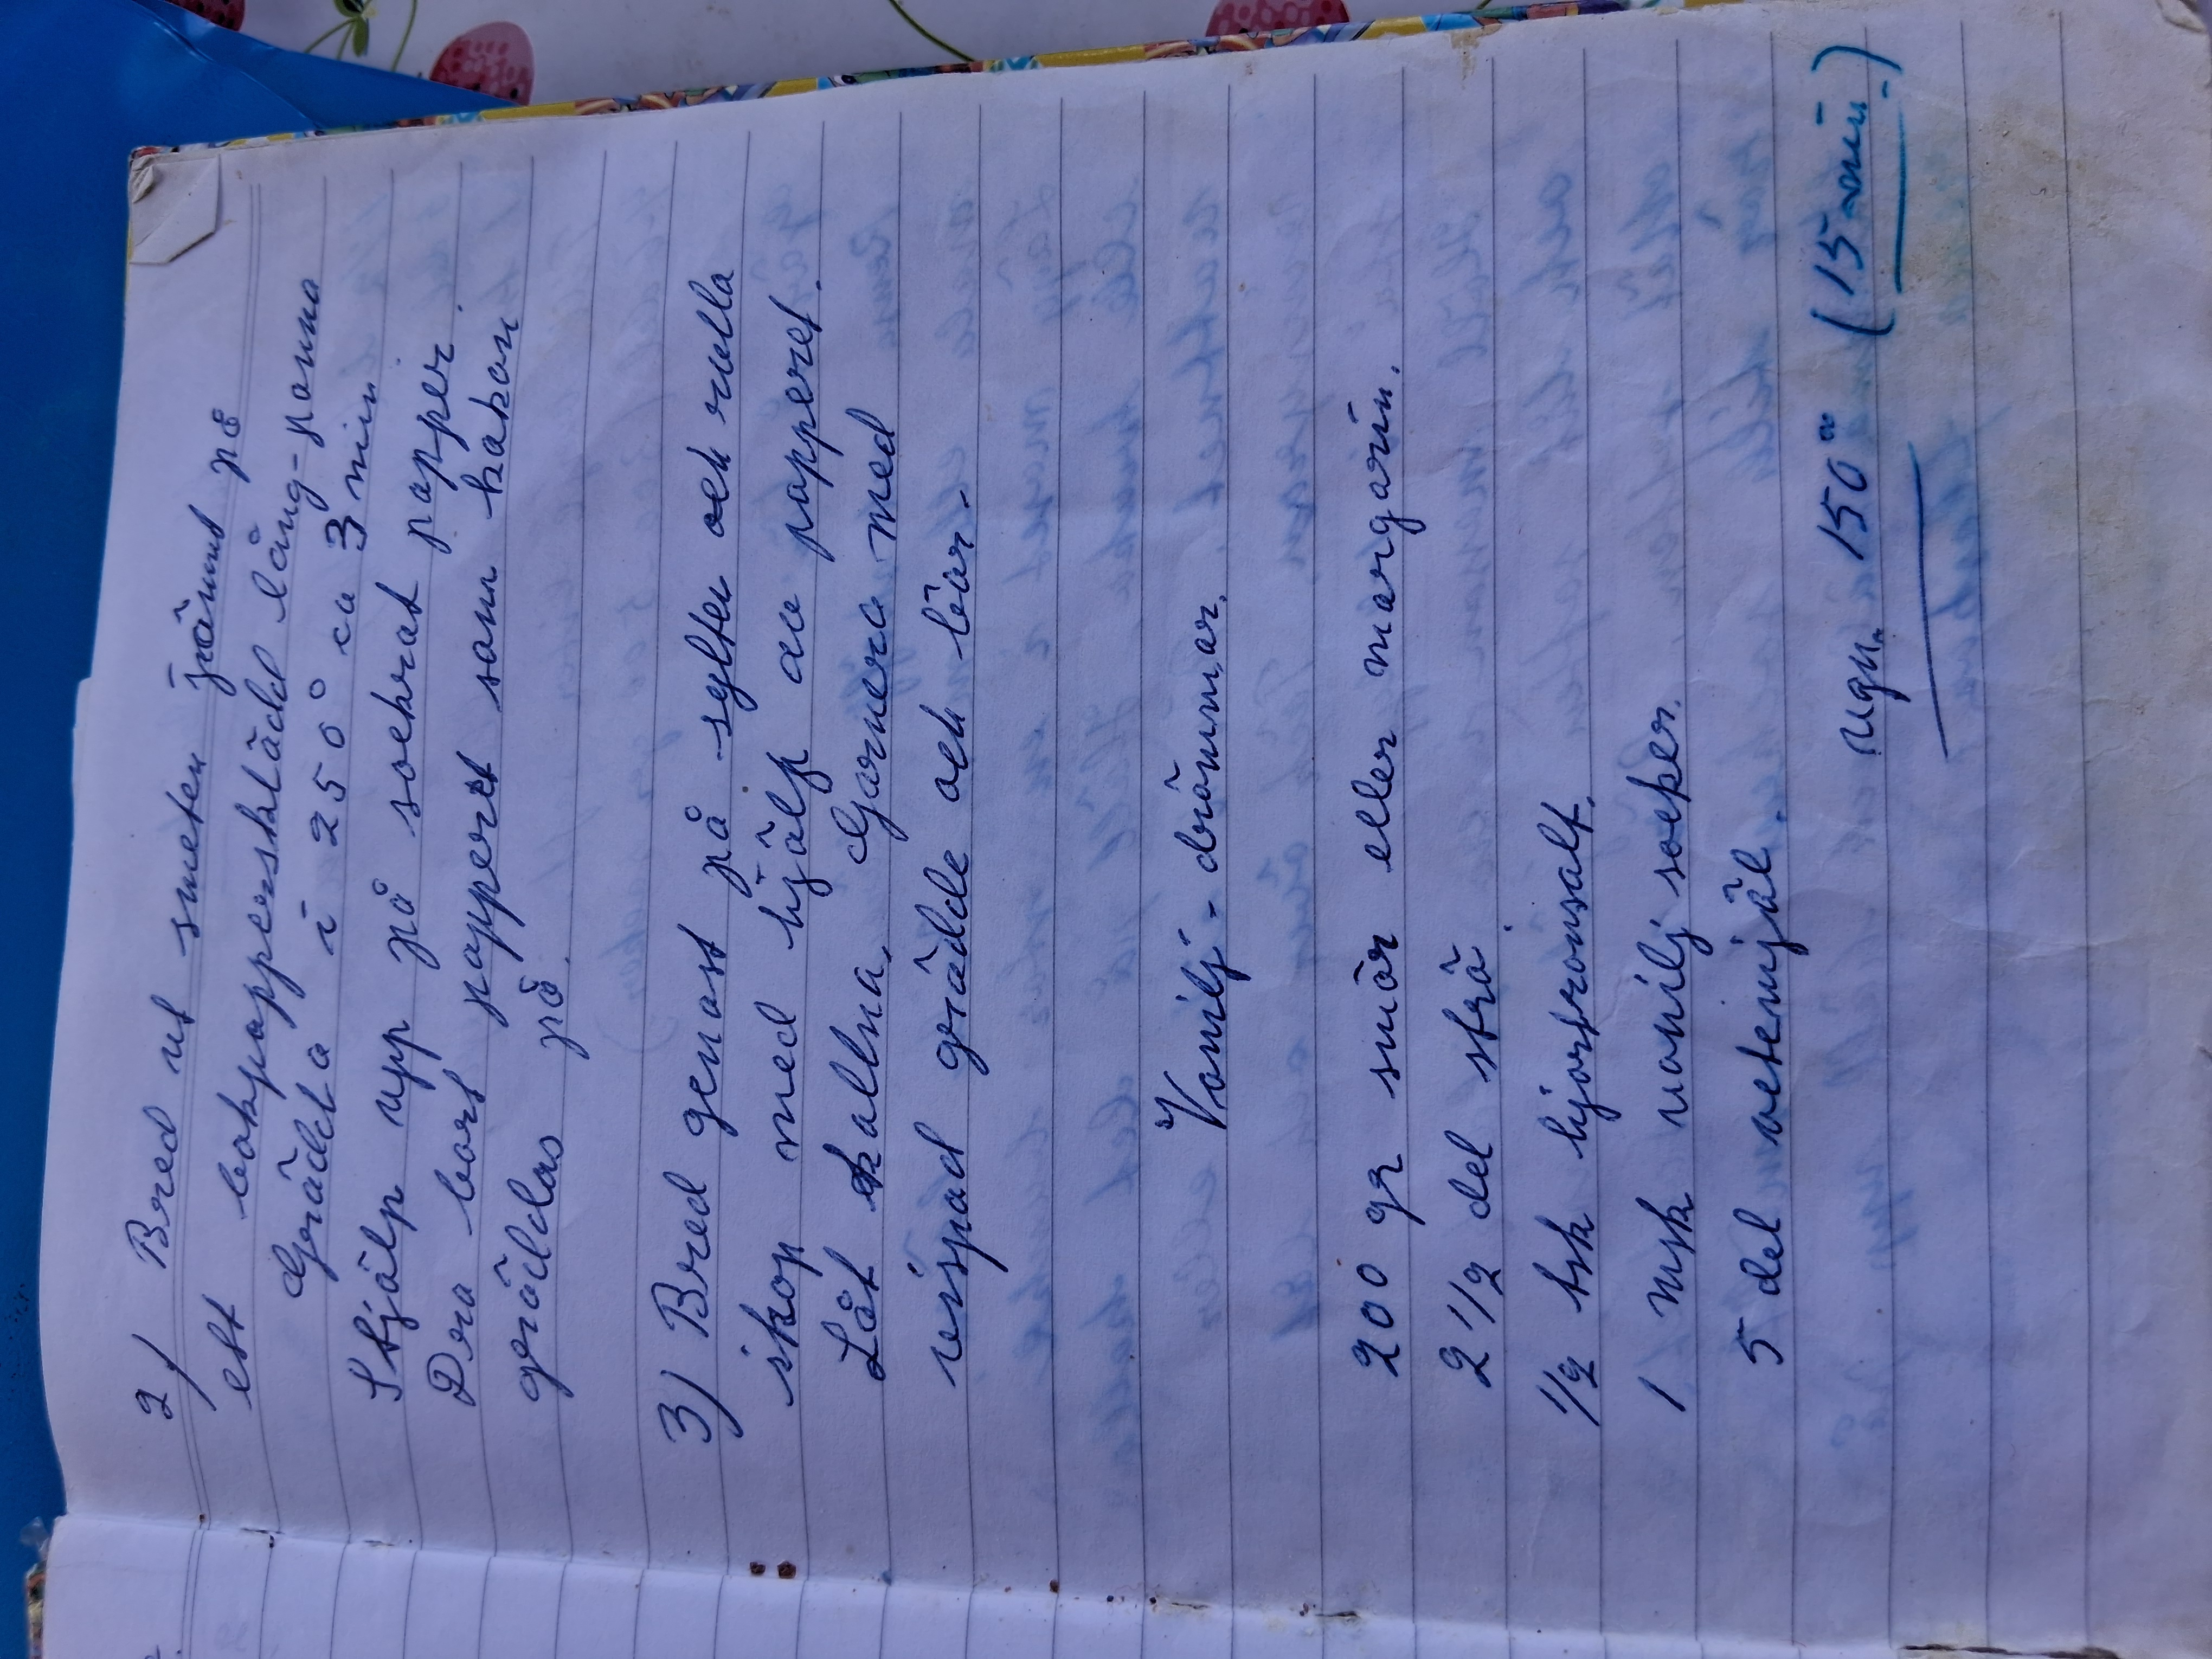 2) Bred ut smeten jämt på
ett bakpappersklädd lång-panna
Grädda i 250° ca 3 min
Stjälp upp på sockrat papper.
Dra bort pappert som kakan
gräddas på.
3) Bred genast på sylten och rulla
ihop med hjälp av papperet.
Låt kallna, Garnera med
vispad grädde och bär.
Vanilj-drömmar.
200 gr smör eller margarin.
2 1/2 del strö.
1/2 tsk hjortronsalt.
1 msk vanilj socker.
5 del vetemjöl.
ugn. 150° (15 min.)